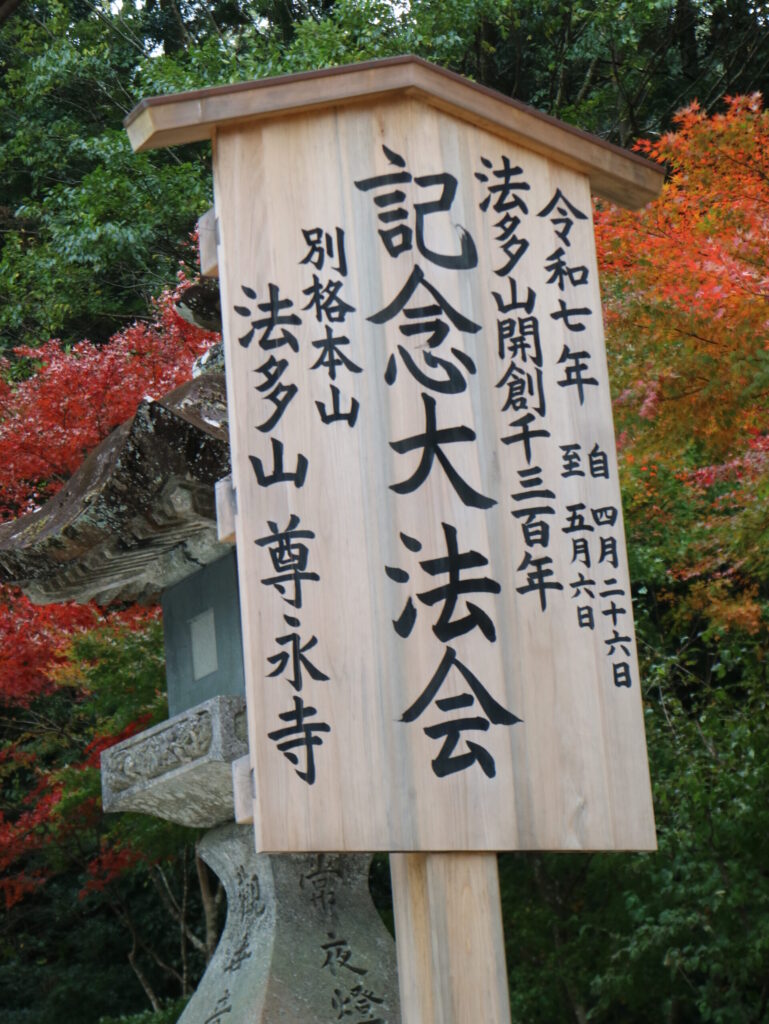 令和七年 自 四月二十六日
至 五月六日
法多山開創千三百年
記念大法会
別格本山
法多山 尊永寺
常夜燈
觀